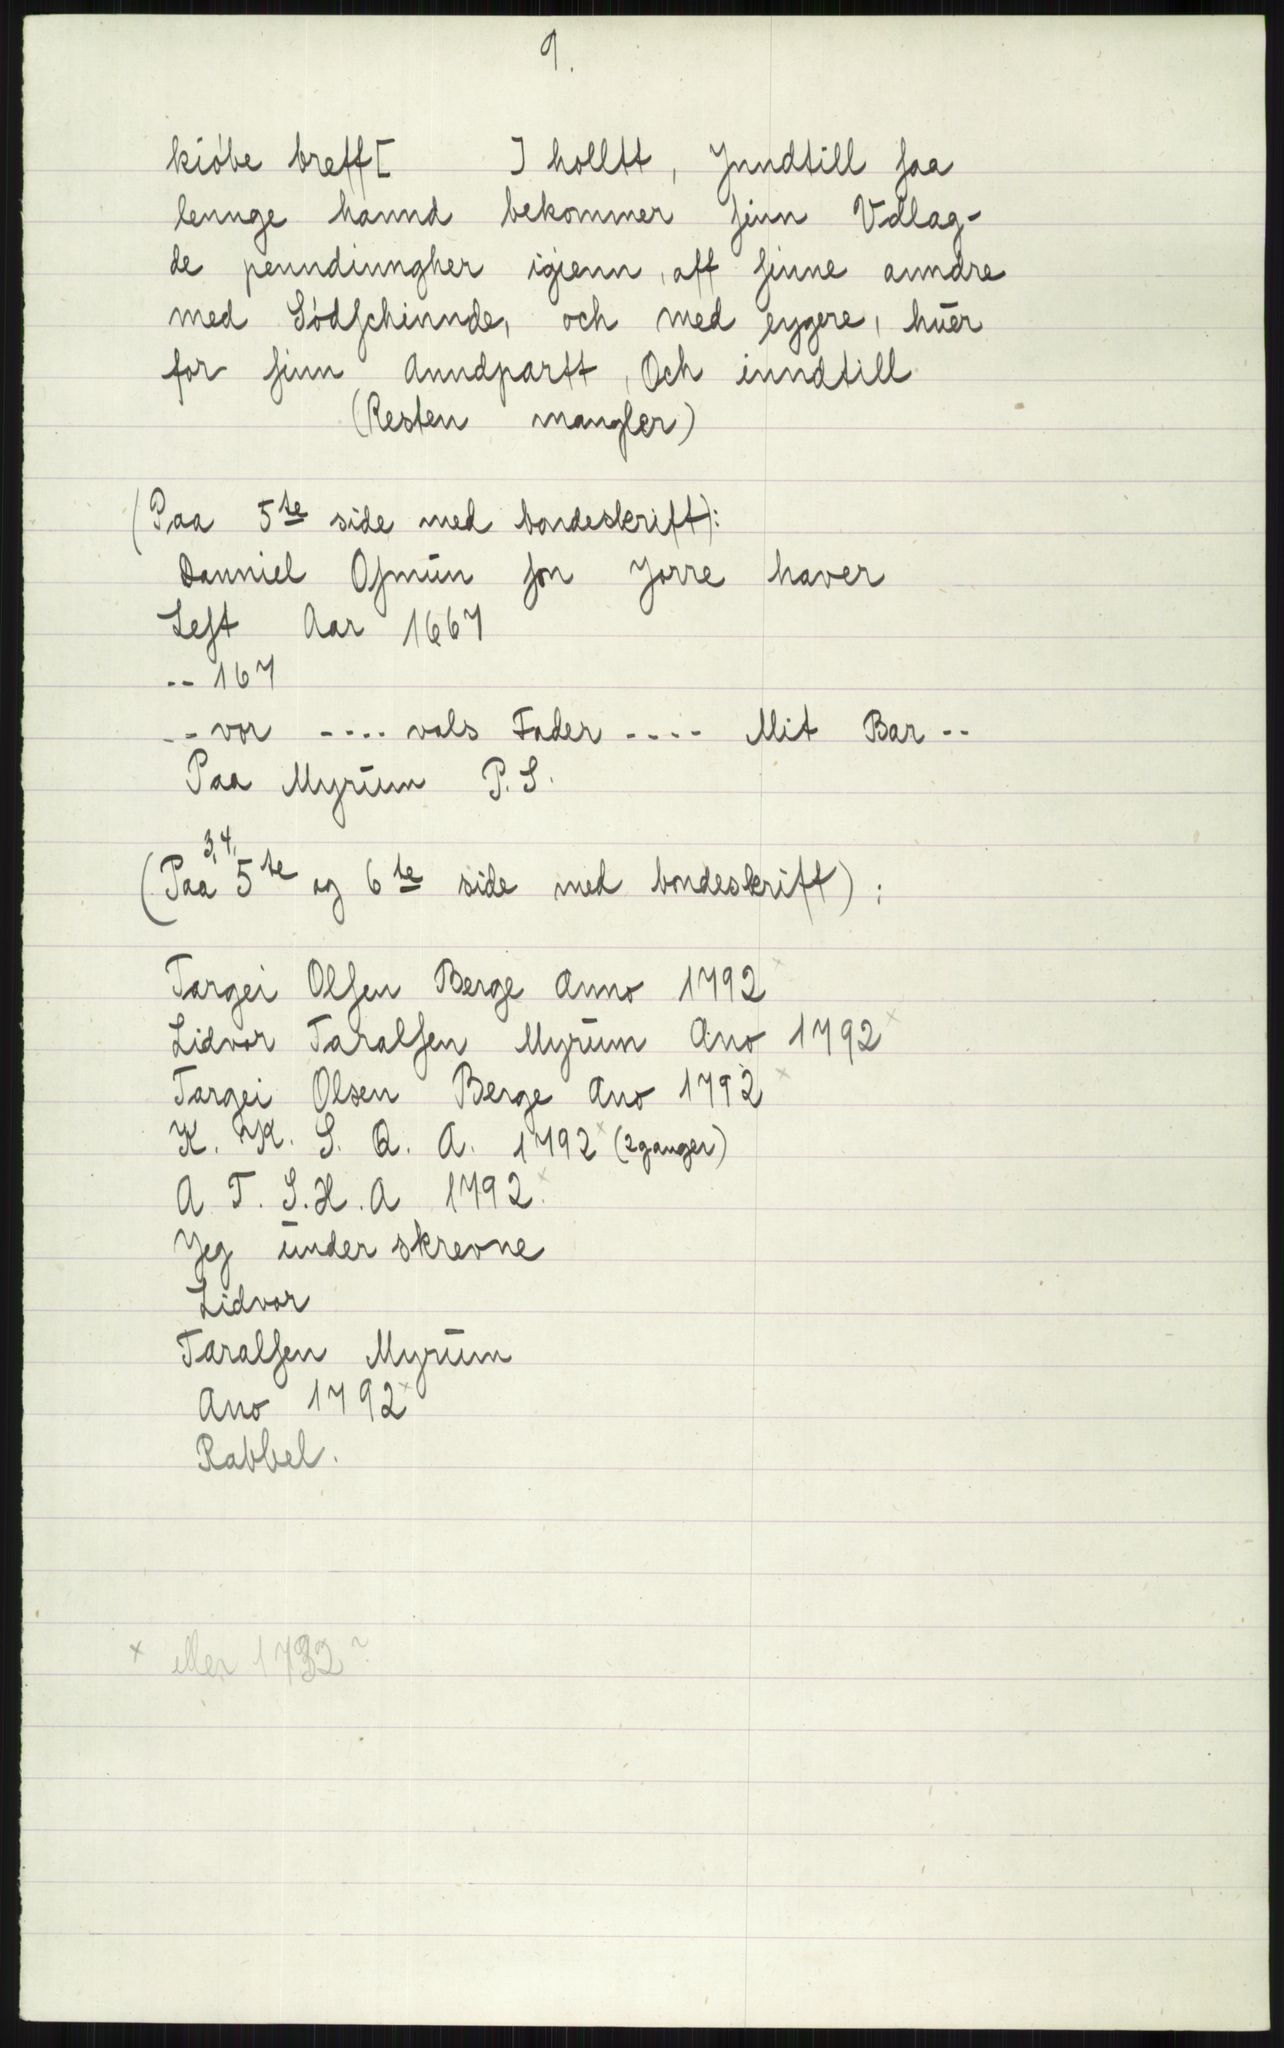 9.
kióbe breff[ ] holltt, Jundtill saa
lennge hannd bekommer sinn Vdlag-
de penndinngher igienn, aff sinne anndre
med Sódschinnde, och med eygere, hūer
for sinn Anndpartt, Och inndtill
(Resten mangler)
(Paa 5te side med bondeskrift):
Danniel Osmūn son Jorre haver
Lest Aar 1667
-- 167
-- vor ---- vals Fader ---- Mit Bar --
Paa Myrūm P. S.
3, 4,
(Paa 5te og 6te side med bondeskrift):
Targei Olsen Berge Anno 1792 x
Lidvor Taralsen Myrūm Ano 1792 x
Targei Olsen Berge Ano 1792 x
K. K. S. Q. A. 1792 x (2 ganger)
A T. S. H. A 1792 x
Jeg ūnder skrevne
Lidvor
Taralsen Myrūm
Ano 1792 x
Rabbel.
x eller 1732?